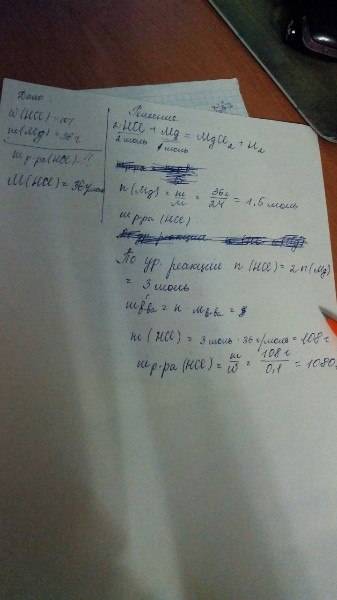 Дано:
w(HCl) = 10%
m(Mg) = 36г
m р-ра (HCl)-?
M(HCl) = 36 г/моль
Решение
2HCl + Mg = MgCl₂ + H₂
2 моль 1 моль
n(Mg) = m/M = 36г/24 = 1,5 моль
m р-ра (HCl)
По ур. реакции n(HCl) = 2n(Mg)
= 3 моль
m в-ва = n M в-ва =
m (HCl) = 3 моль · 36 г/моль = 108 г
m р-ра (HCl) = m/w = 108 г/0,1 = 1080